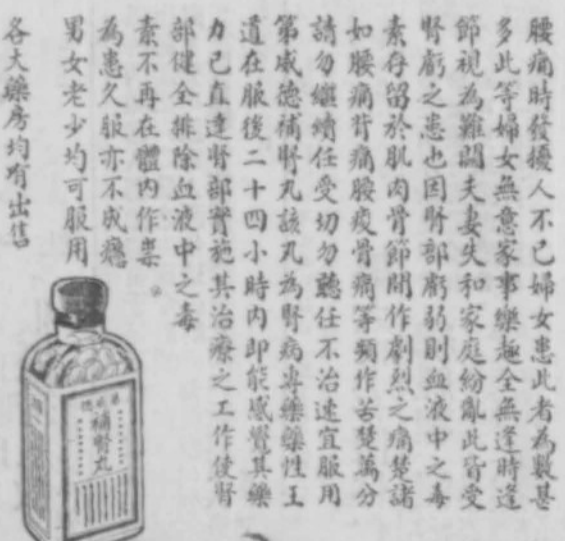 腰痛時發擾人不已婦女患此者為數甚
多此等婦女無意家事樂趣全無逢時逢
節視為難關夫妻失和家庭紛亂此皆受
腎虧之患也因腎部虧弱則血液中之毒
素存留於肌肉骨節間作劇烈之痛楚諸
如腰痛背痛腰痠骨痛等頻作苦楚萬分
請勿繼續任受切勿聽任不治速宜服用
第威德補腎丸該丸為腎病專藥藥性王
道在服後二十四小時內即能感覺其藥
力已直達腎部實施其治療之工作使腎
部健全排除血液中之毒
素不再在體內作祟。
為患久服亦不成癮
男女老少均可服用
各大藥房均有出售
第威德
補腎丸